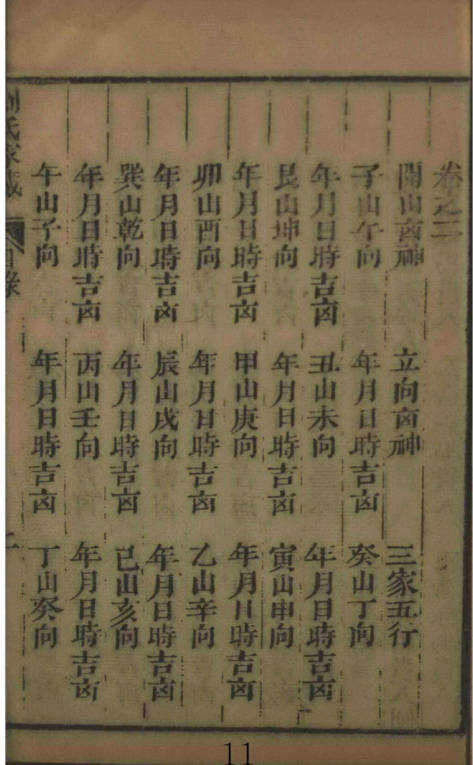 卷之二
開山㐫神 立向㐫神 三家五行
子山午向 年月日時吉㐫 癸山丁向
年月日時吉㐫 丑山未向 年月日時吉㐫
艮山坤向 年月日時吉㐫 寅山申向
年月日時吉㐫 甲山庚向 年月日時吉㐫
卯山酉向 年月日時吉㐫 乙山辛向
年月日時吉㐫 辰山戌向 年月日時吉㐫
巽山乾向 年月日時吉㐫 巳山亥向
年月日時吉㐫 丙山壬向 年月日時吉㐫
午山子向 年月日時吉㐫 丁山癸向
氏家藏 目錄
11